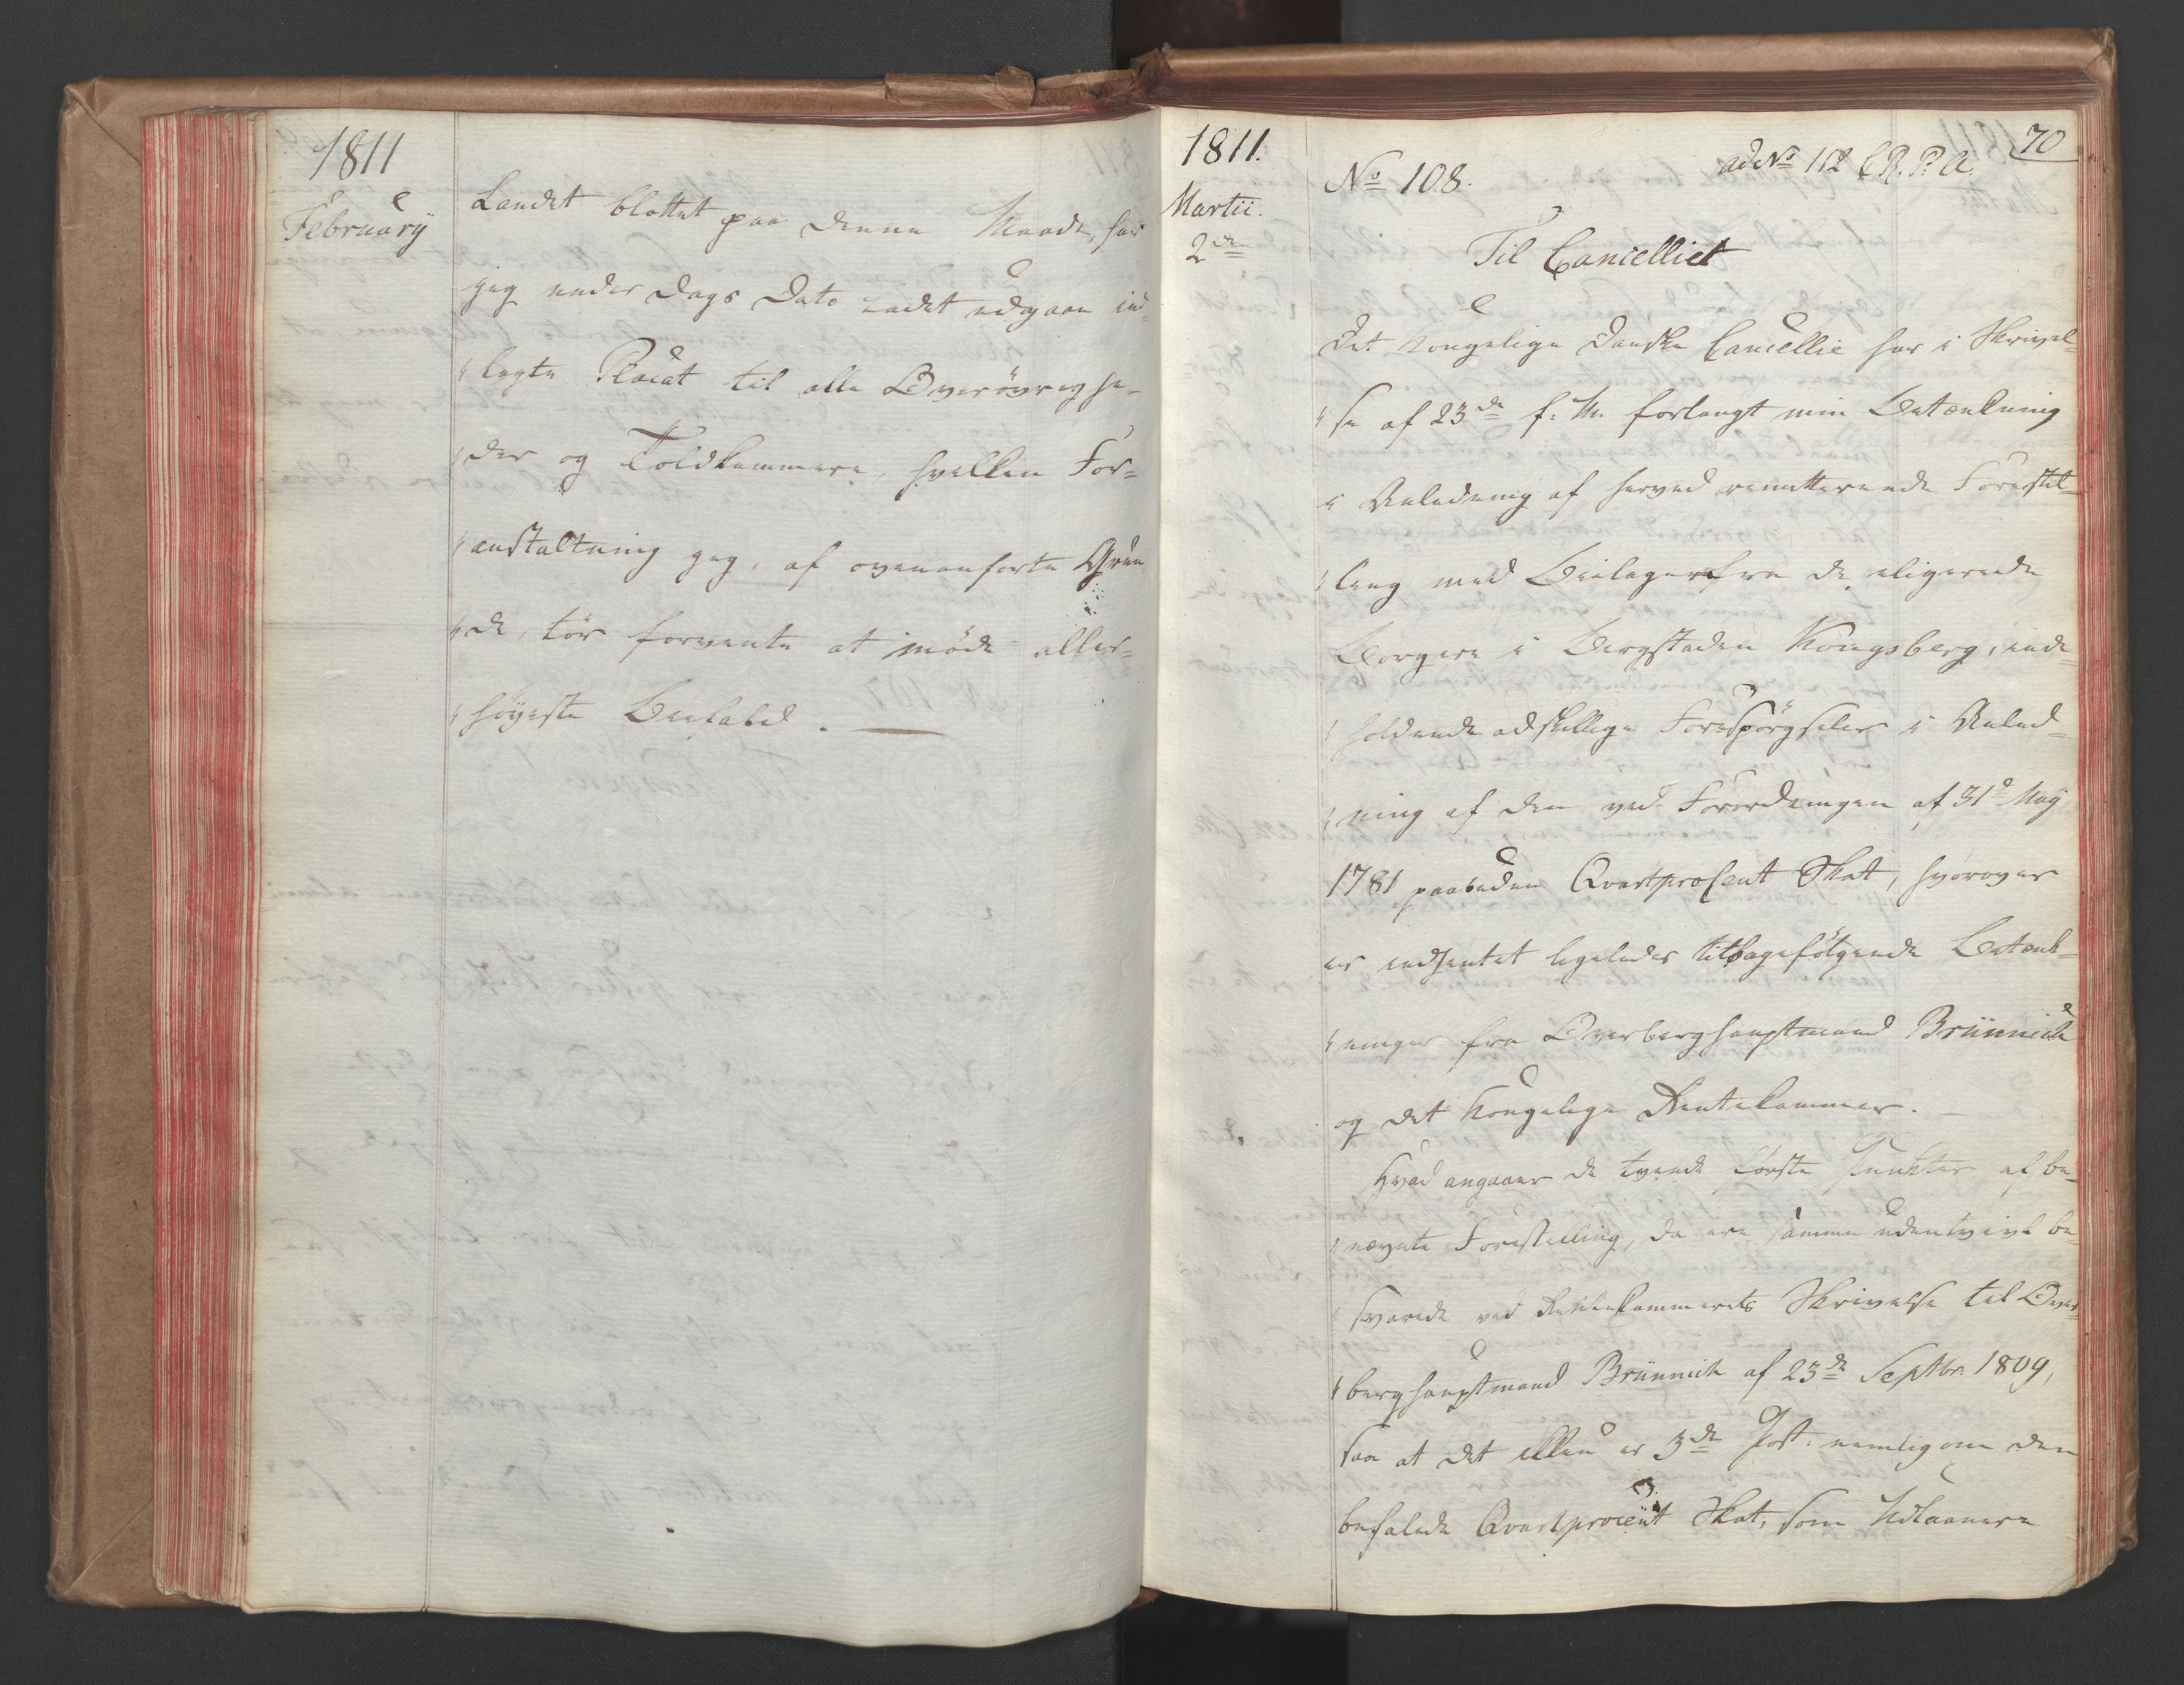 1811
February
Landet blottet paa denne Maade, har
jeg under Dags Dato ladet udgaae ind¬
lagte Placat til alle Overøvrighe¬
der og Toldkammere, hvilken For¬
anstaltning jeg, af ovenanførte Grun¬
de, tør forvente at møde aller¬
høyeste Beifald.
1811.
Martii.
2den
70
No 108.
ad No 112 C. R. P. A.
Til Cancelliet
Det Kongelige Danske Cancellie har i Skrivel¬
se af 23de f. M. forlangt min Betænkning
i Anledning af herved remitterende Forestil¬
ling med Beilager fra de eligerede
Borgere i Bergstaden Kongsberg, inde¬
holdende adskillige Forespørgseler i Anled¬
ning af den ved Forordningen af 31d May
1781 paabudne Qvartprocent Skat, hvorover
er indhentet ligeledes tilbagefølgende Betænk¬
ninger fra Overberghauptmand Brünnich
og det Kongelige Rentekammer.
Hvad angaaer de tvende første Punkter af be¬
nævnte Forestilling, da ere samme udentvivl be¬
svarede ved Rentekammerets Skrivelse til Over¬
berghauptmand Brünnich af 23de Septbr. 1809,
saa at det allene er 3de Post: nemlig om den
befalede Qvartprocent Skat, som Udlaanere